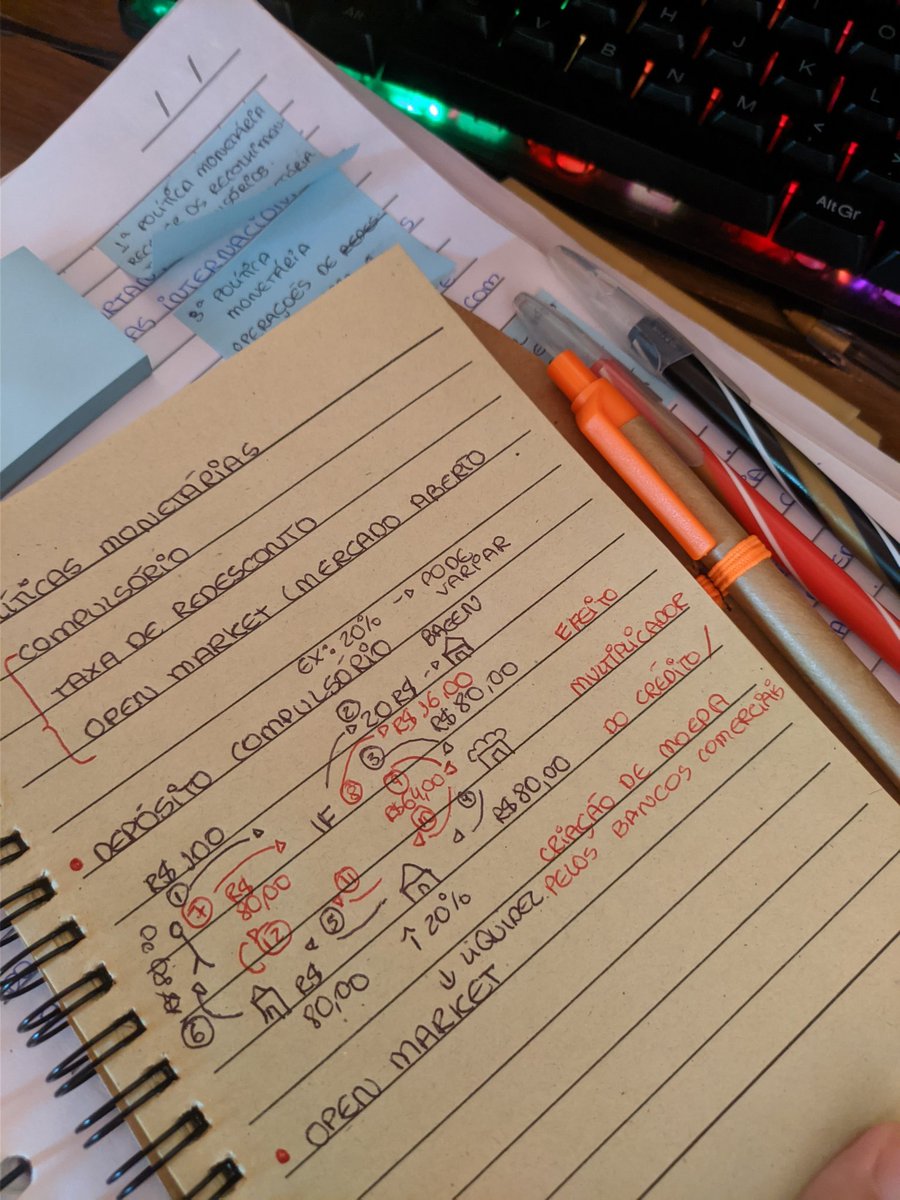 1ª POLÍTICA MONETÁRIA
OS RECOLHIMEN
3ª POLÍTICA
MONETÁRIA
OPERAÇÕES DE REDES
INTERNACION
COM
LÍTICAS MONETÁRIAS
COMPULSÓRIO
TAXA DE REDESCONTO
OPEN MARKET (MERCADO ABERTO
EX: 20% → PODE
VARIAR
• DEPÓSITO COMPULSÓRIO
BACEN
② 20R$ →
R$ 16,00
③ R$ 80,00
EFEITO
MULTIPLICADOR
DO CRÉDITO /
CRIAÇÃO DE MOEDA
PELOS BANCOS COMERCIAIS
R$ 100
① IF ⑧ ⑨
R$64,00
⑩ ④ R$80,00
⑦ R$
80,00
⑫ ⑤ ⑪
⑥ R$
80,00
↑ 20%
↓ LIQUIDEZ.
• OPEN MARKET
V
B
N
M
H
J
K
L
O
<
Alt
AltGr